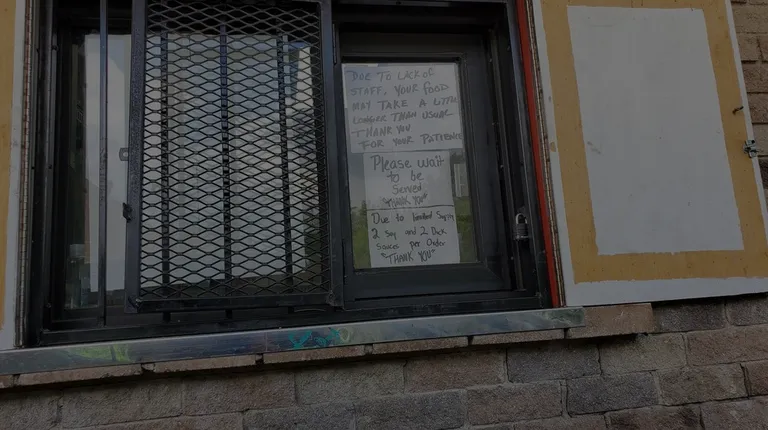 DUE TO LACK OF
STAFF, YOUR FOOD
MAY TAKE A LITTLE
LONGER THAN USUAL
THANK YOU
FOR YOUR PATIENCE
Please wait
to be
Served
"THANK YOU"
Due to limited Supply
2 Soy and 2 Duck
Sauces per Order
"THANK YOU"